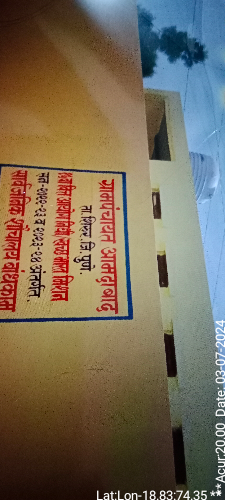 ग्रामपंचायत आमदाबाद
ता.शिरूर, जि.पुणे.
१५वा वित्त आयोग निधी, स्वच्छ भारत मिशन
सन-२०२२-२३ व २०२३-२४ अंतर्गत
सार्वजनिक शौचालय बांधकाम
Lat:Lon-18.83:74.35 **
**Acur:20.00 Date: 03-07-2024